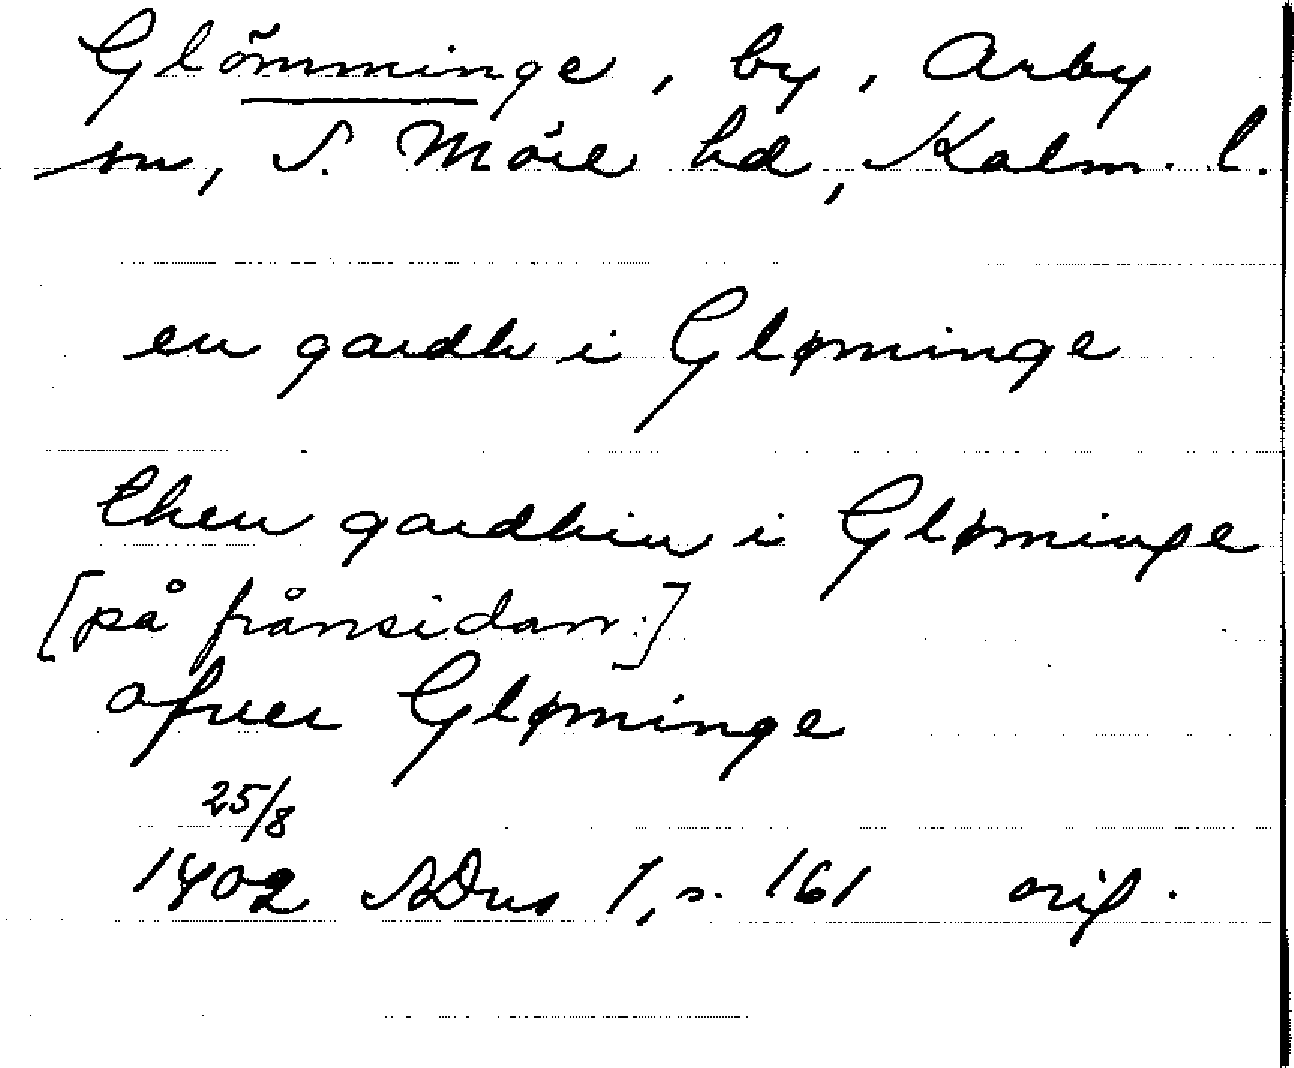 Glömminge, by, Arby
sn, S. Möre hd, Kalm. l.
en gardh i Gløminge
then gardhin i Gløminge
[på frånsidan:]
ofver Gløminge
25/8
1402 SDns 1, s. 161 orig.